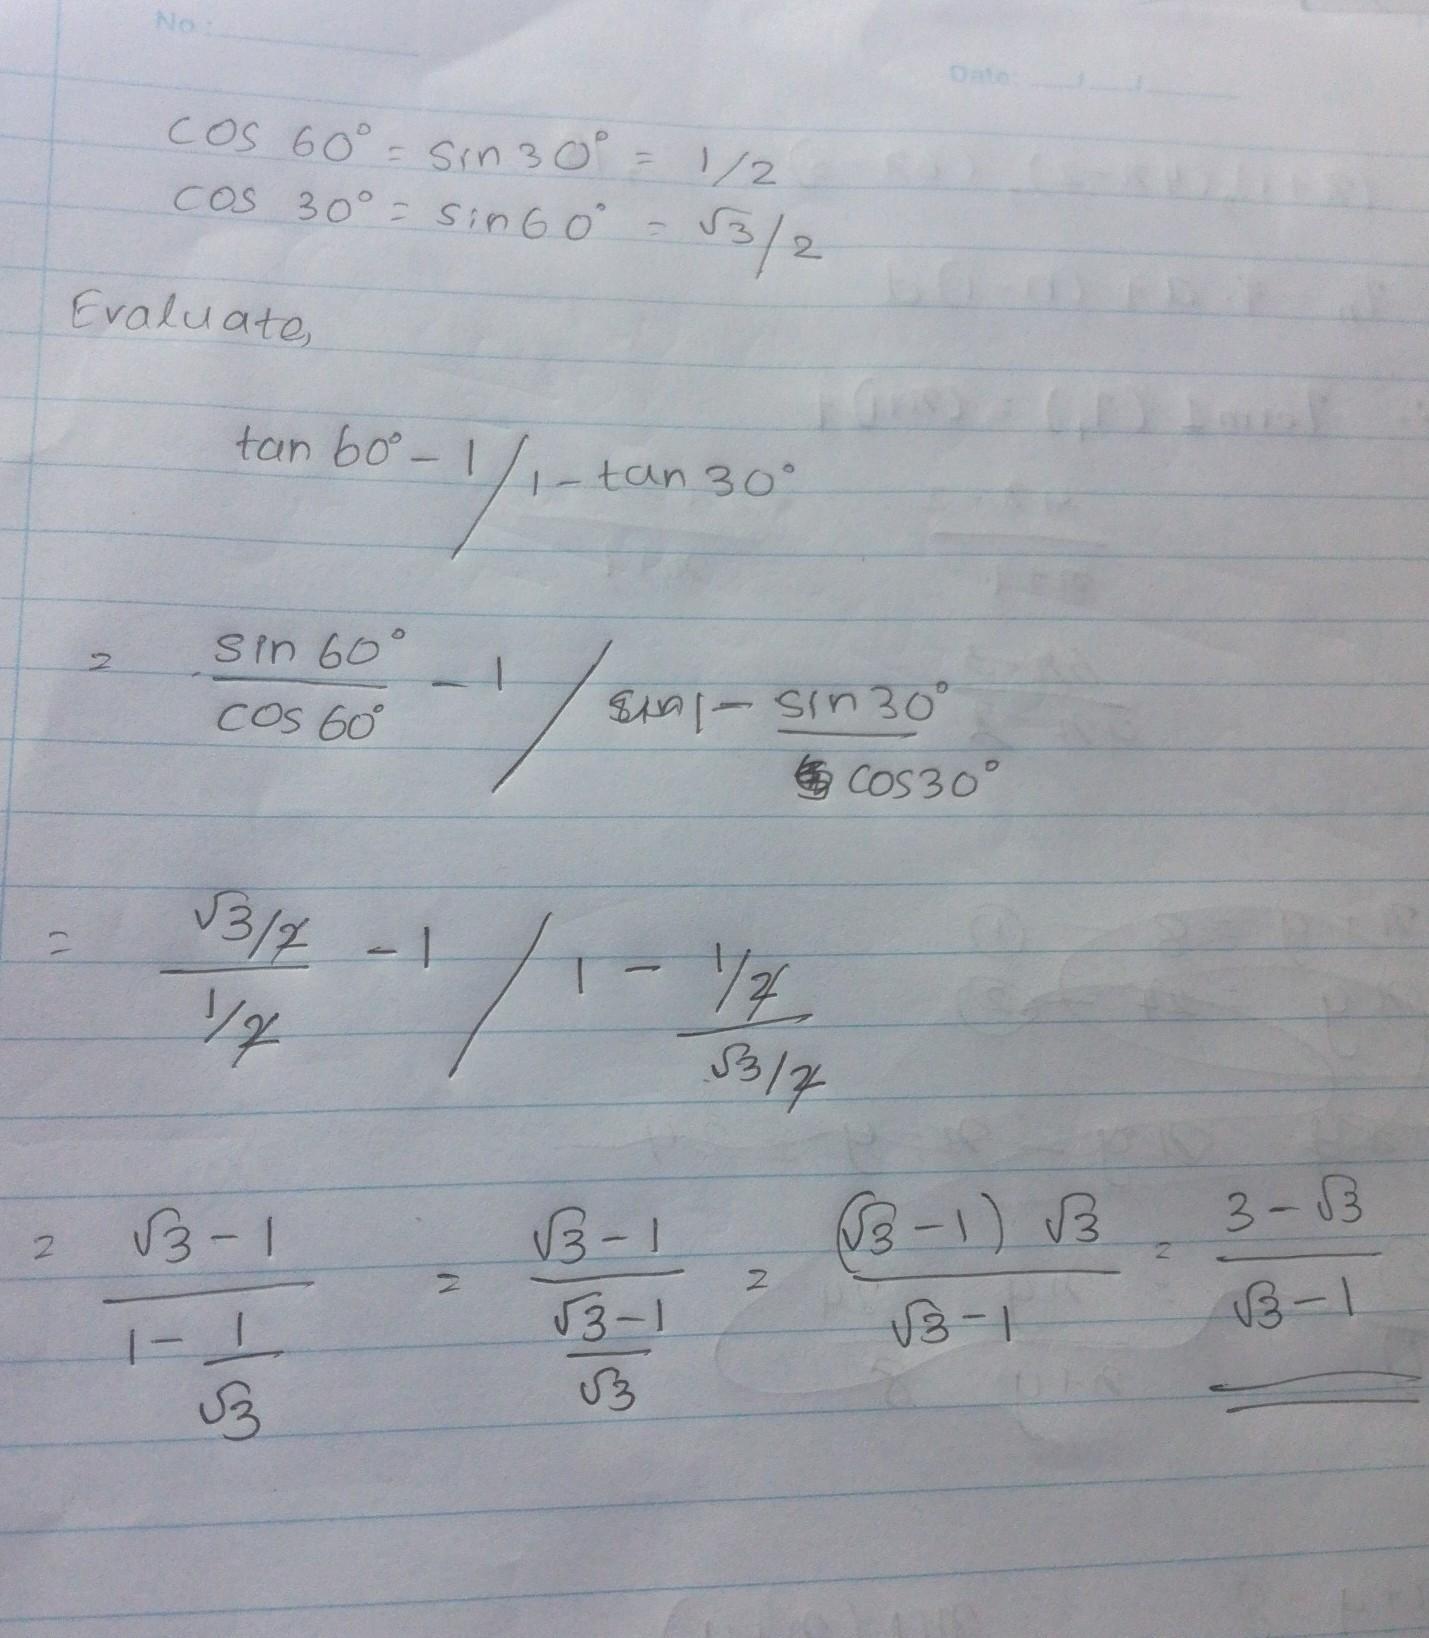 No:
Date: / /
cos 60° = sin 30° = 1/2
cos 30° = sin 60° = √3/2
Evaluate,
tan 60° - 1 / 1 - tan 30°
= sin 60° / cos 60° - 1 / 1 - sin 30° / cos 30°
= √3/2 / 1/2 - 1 / 1 - 1/2 / √3/2
= √3 - 1 / 1 - 1/√3 = √3 - 1 / √3 - 1 / √3 = (√3 - 1) √3 / √3 - 1 = 3 - √3 / √3 - 1